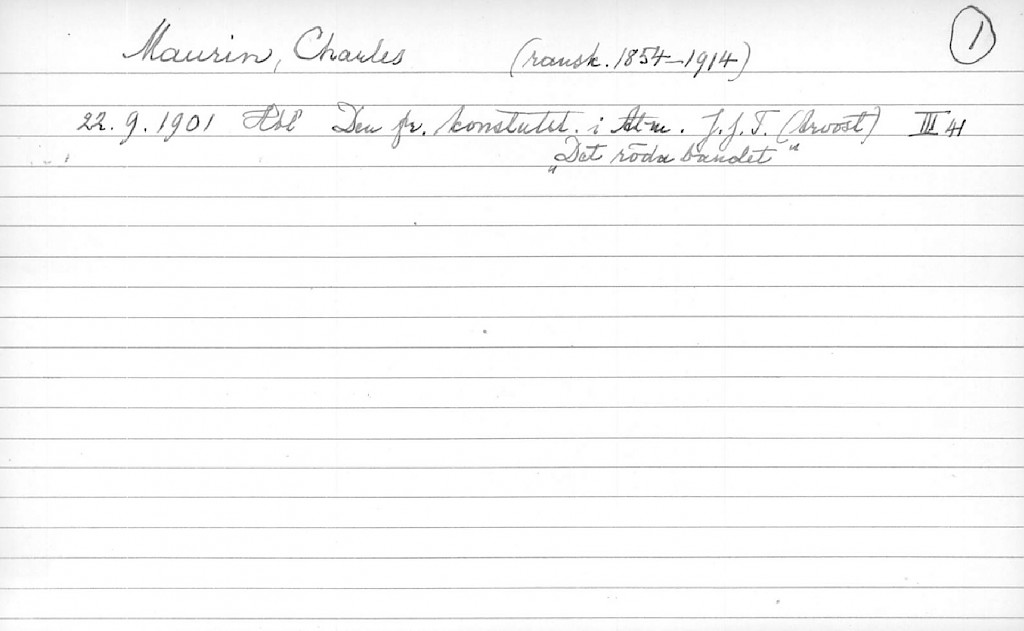 Maurin, Charles (ransk. 1854–1914) 1
22. 9. 1901 Hbl Den fr. konstutst. i At-m. J.J.T. (Arvost) III 41
"Det röda bandet"